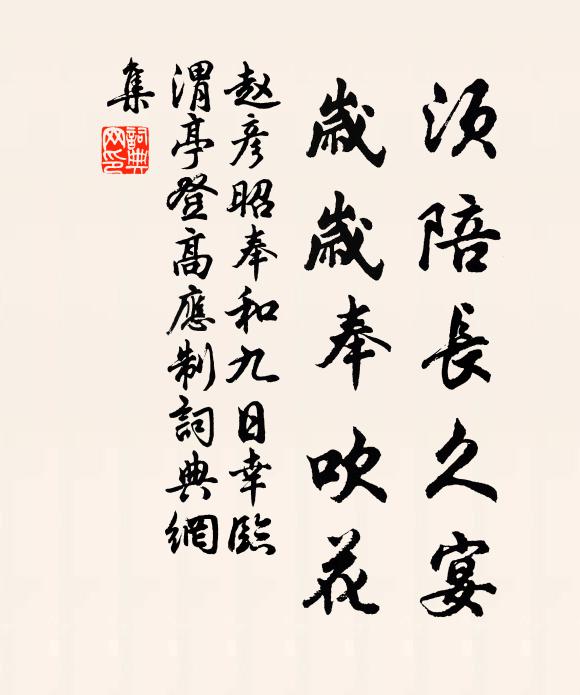 須陪長久宴
歲歲奉吹花
赵彦昭奉和九日幸臨
渭亭登高應制詞典網
集
詞典
网印